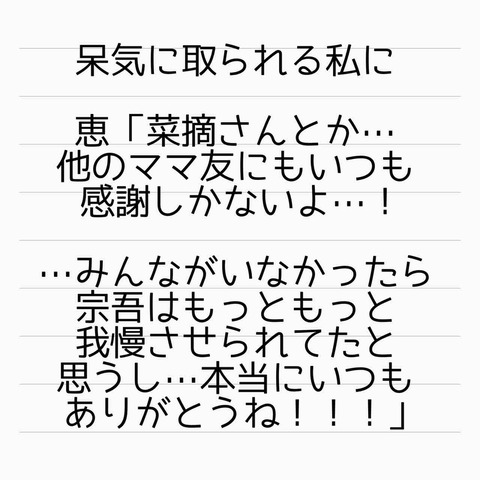 呆気に取られる私に
恵「菜摘さんとか…
他のママ友にもいつも
感謝しかないよ…！
…みんながいなかったら
宗吾はもっともっと
我慢させられてたと
思うし…本当にいつも
ありがとうね！！！」